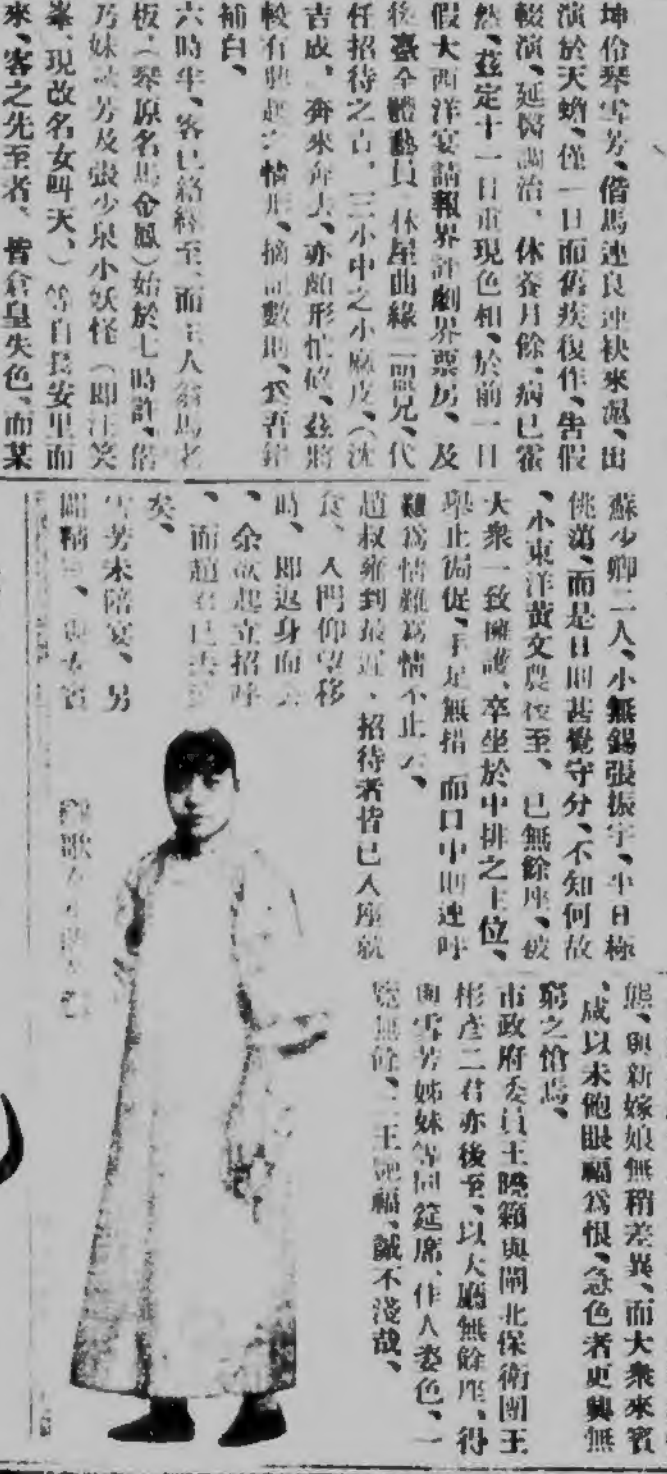 坤伶琴雪芳、偕馬連良連袂來滬、出
演於天蟾、僅一日而舊疾復作、告假
輟演、延醫調治、休養月餘、病已霍
然、茲定十一日重現色相、於前一日
假大西洋宴請報界評劇界票房、及
後臺全體藝員、林屋曲緣二盟兄、代
任招待之責、三小中之小麻皮、(沈
吉成、奔來奔去、亦頗形忙碌、茲將
較有興趣之情形、摘記數則、
補白、
六時半、客已絡繹至、而主人翁馬老
板、(琴原名馬金鳳)始於七時許、偕
乃妹秋芳及張少泉小妖怪(即汪笑
峯、現改名女叫天、)等自長安里而
來、客之先至者、皆倉皇失色、而某
蘇少卿二人、小無錫張振宇、平日極
佻蕩、而是日則甚覺守分、不知何故
、小東洋黃文農後至、已無餘座、被
大衆一致擁護、卒坐於中排之上位、
舉止侷促、手足無措、而口中則連呼
難爲情難爲情不止云、
趙叔雍到最遲、招待者皆已入座就
食、入門仰望移
時、即返身而去
、余欲起立招呼
、而趙君已去遠
矣、
雪芳未陪宴、另
開
態、與新嫁娘無稍差異、而大衆來賓
、咸以未飽眼福爲恨、急色者更興無
窮之愴焉、
市政府委員王曉籟與閘北保衛團王
彬彥二君亦後至、以大廳無餘座、得
與雪芳姊妹等同筵席、佳人姿色、一
覽無餘、二王艷福、誠不淺哉、